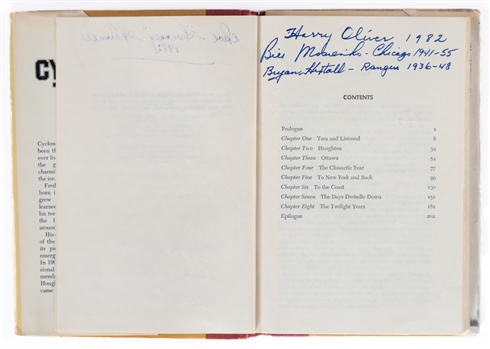 CY
Cyclon
been th
ever liv
the g
charmi
the ice.
Fred
born
grew
learned
his tee
the
aroun
His
of the
its p
emerg
In 190
sional
memb
Hough
came
Harry Oliver, 1982
Bill Mosienko - Chicago 1941-55
Bryan Hextall - Rangers 1936-48
CONTENTS
Prologue 1
Chapter One Tara and Listowel 6
Chapter Two Houghton 34
Chapter Three Ottawa 54
Chapter Four The Clinnette Year 77
Chapter Five To New York and Back 99
Chapter Six To the Coast 130
Chapter Seven The Days Dwindle Down 151
Chapter Eight The Twilight Years 182
Epilogue 202